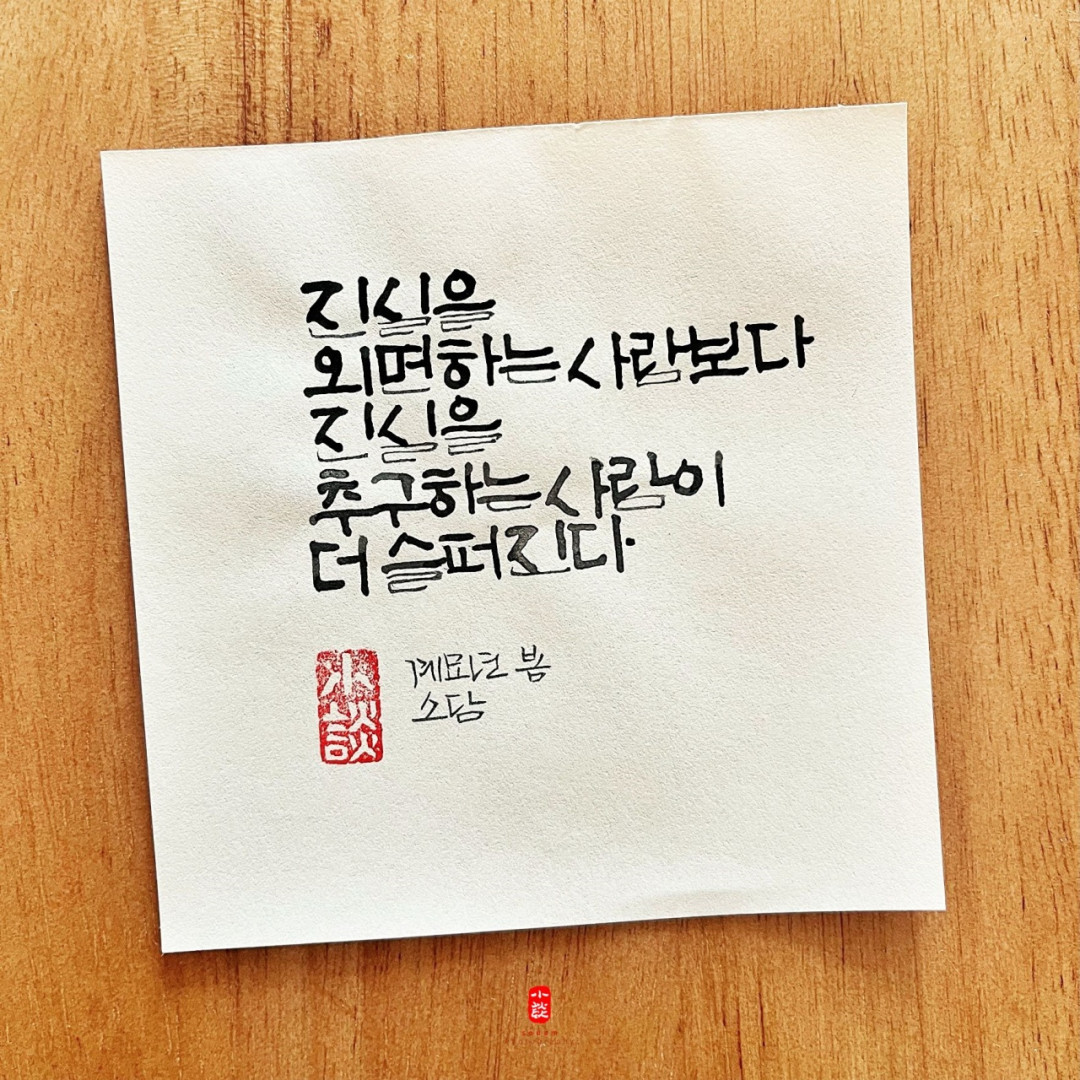 진실을
외면하는 사람보다
진실을
추구하는 사람이
더 슬퍼진다.
계묘년 봄
소담
小談
小談